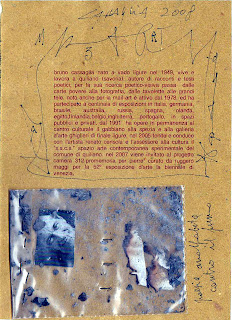 2008
bruno cassaglia nato a vado ligure nel 1949, vive e
lavora a quiliano (savona). autore di racconti e testi
poetici, per la sua ricerca poetico-visiva passa dalle
carte povere alla fotografia, dalle tavolette alle grandi
tele. noto anche per la mail-art è attivo dal 1978, ed ha
partecipato a centinaia di esposizioni in italia, germania,
svezia, australia, russia, spagna, olanda,
egitto, finlandia, belgio, inghilterra, portogallo, in spazi
pubblici e privati. dal 1991 ha opere in permanenza al
centro culturale il gabbiano alla spezia e alla galleria
d'arte ghiglieri di finale ligure, nel 2006 fonda e conduce
con l'artista renata corsola e l'assessore alla cultura il
"s.a.c.s." spazio arte contemporanea sperimentale del
comune di quiliano. nel 2007 viene invitato al progetto
camera 312,promemoria, per pierre" curato da ruggero
maggi per la 52° esposizione d'arte la biennale di
venezia.